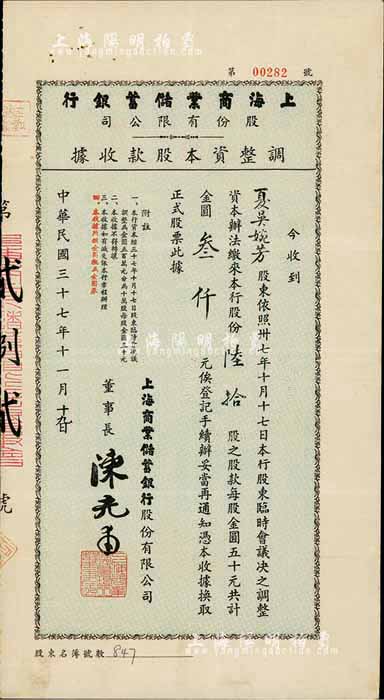 上海陽明拍賣
www.yangmingauction.com
第 00282 號
上海商業儲蓄銀行
股份有限公司
調整資本股款收據
今收到
夏吳婉芳 股東依照卅七年十月十七日本行股東臨時會議決之調整
資本辦法繳來本行股份 陸拾 股之股款每股金圓五十元共計
金圓 叁仟 元俟登記手續辦妥當再通知憑本收據換取
正式股票此據
附註
一、本行資本經三十七年十月十七日股東臨時會決議
調整為金圓五百萬元分為十萬股每股金圓五十元
二、本收據不得轉讓
三、本收據如有滅失依本行章程辦理
上海商業儲蓄銀行股份有限公司
董事長 陳光甫
中華民國三十七年十一月十九日
第 貳捌貳 號
股東名簿號數 847
上海陽明拍賣
www.yangmingauction.com